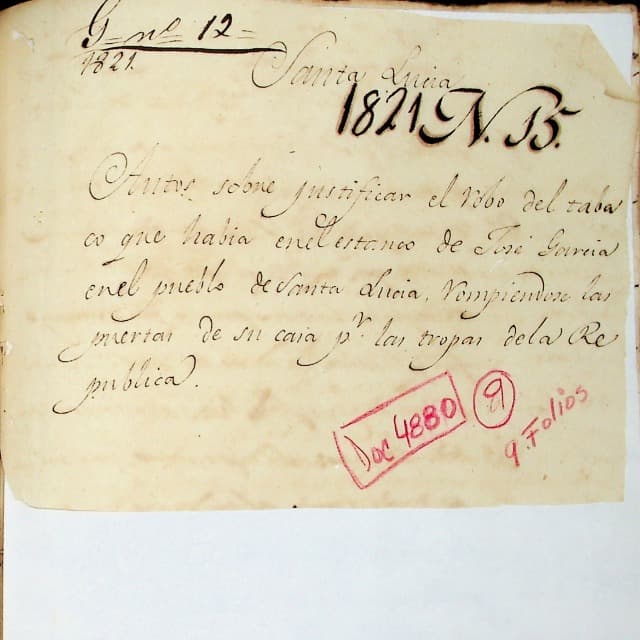 G nº 12
1821.
Santa Lucia
1821 N. 15.
Autos sobre justificar el robo del taba
co que habia enel estanco de José Garcia
enel pueblo de Santa Lucia, rompiendose las
puertas de su casa pr. las tropas dela Re
publica.
Doc 4880
9
9. Folios